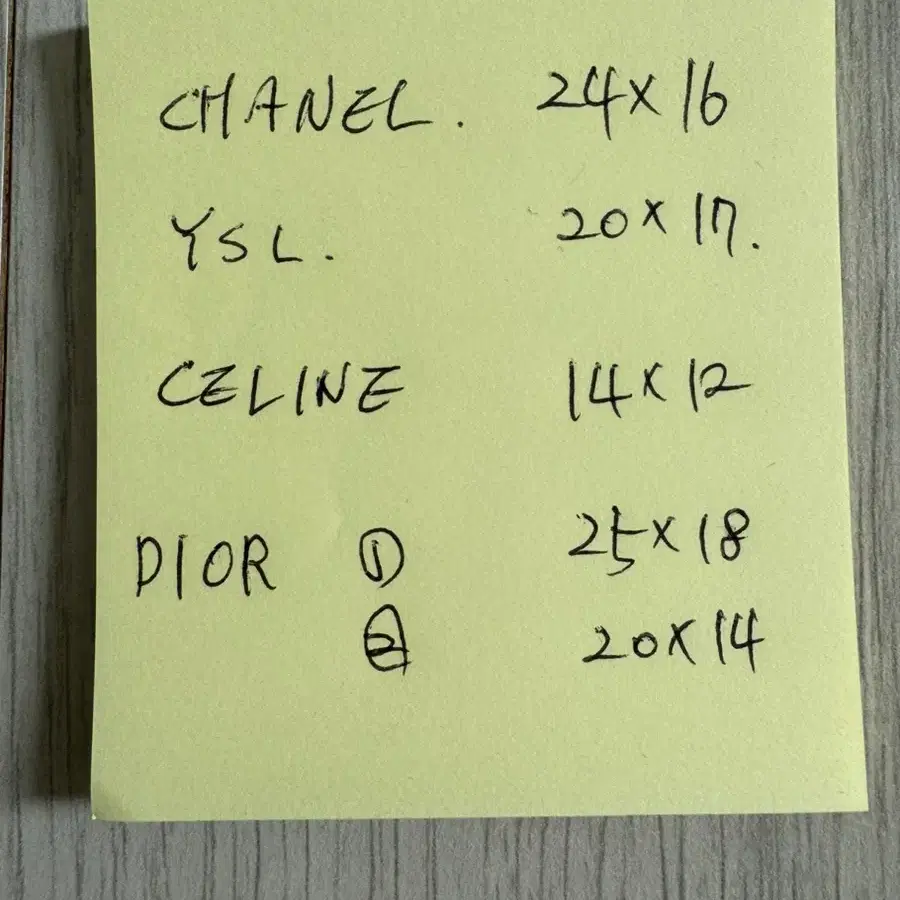 CHANEL. 24x16
YSL. 20x17.
CELINE 14x12
DIOR ① 25x18
② 20x14